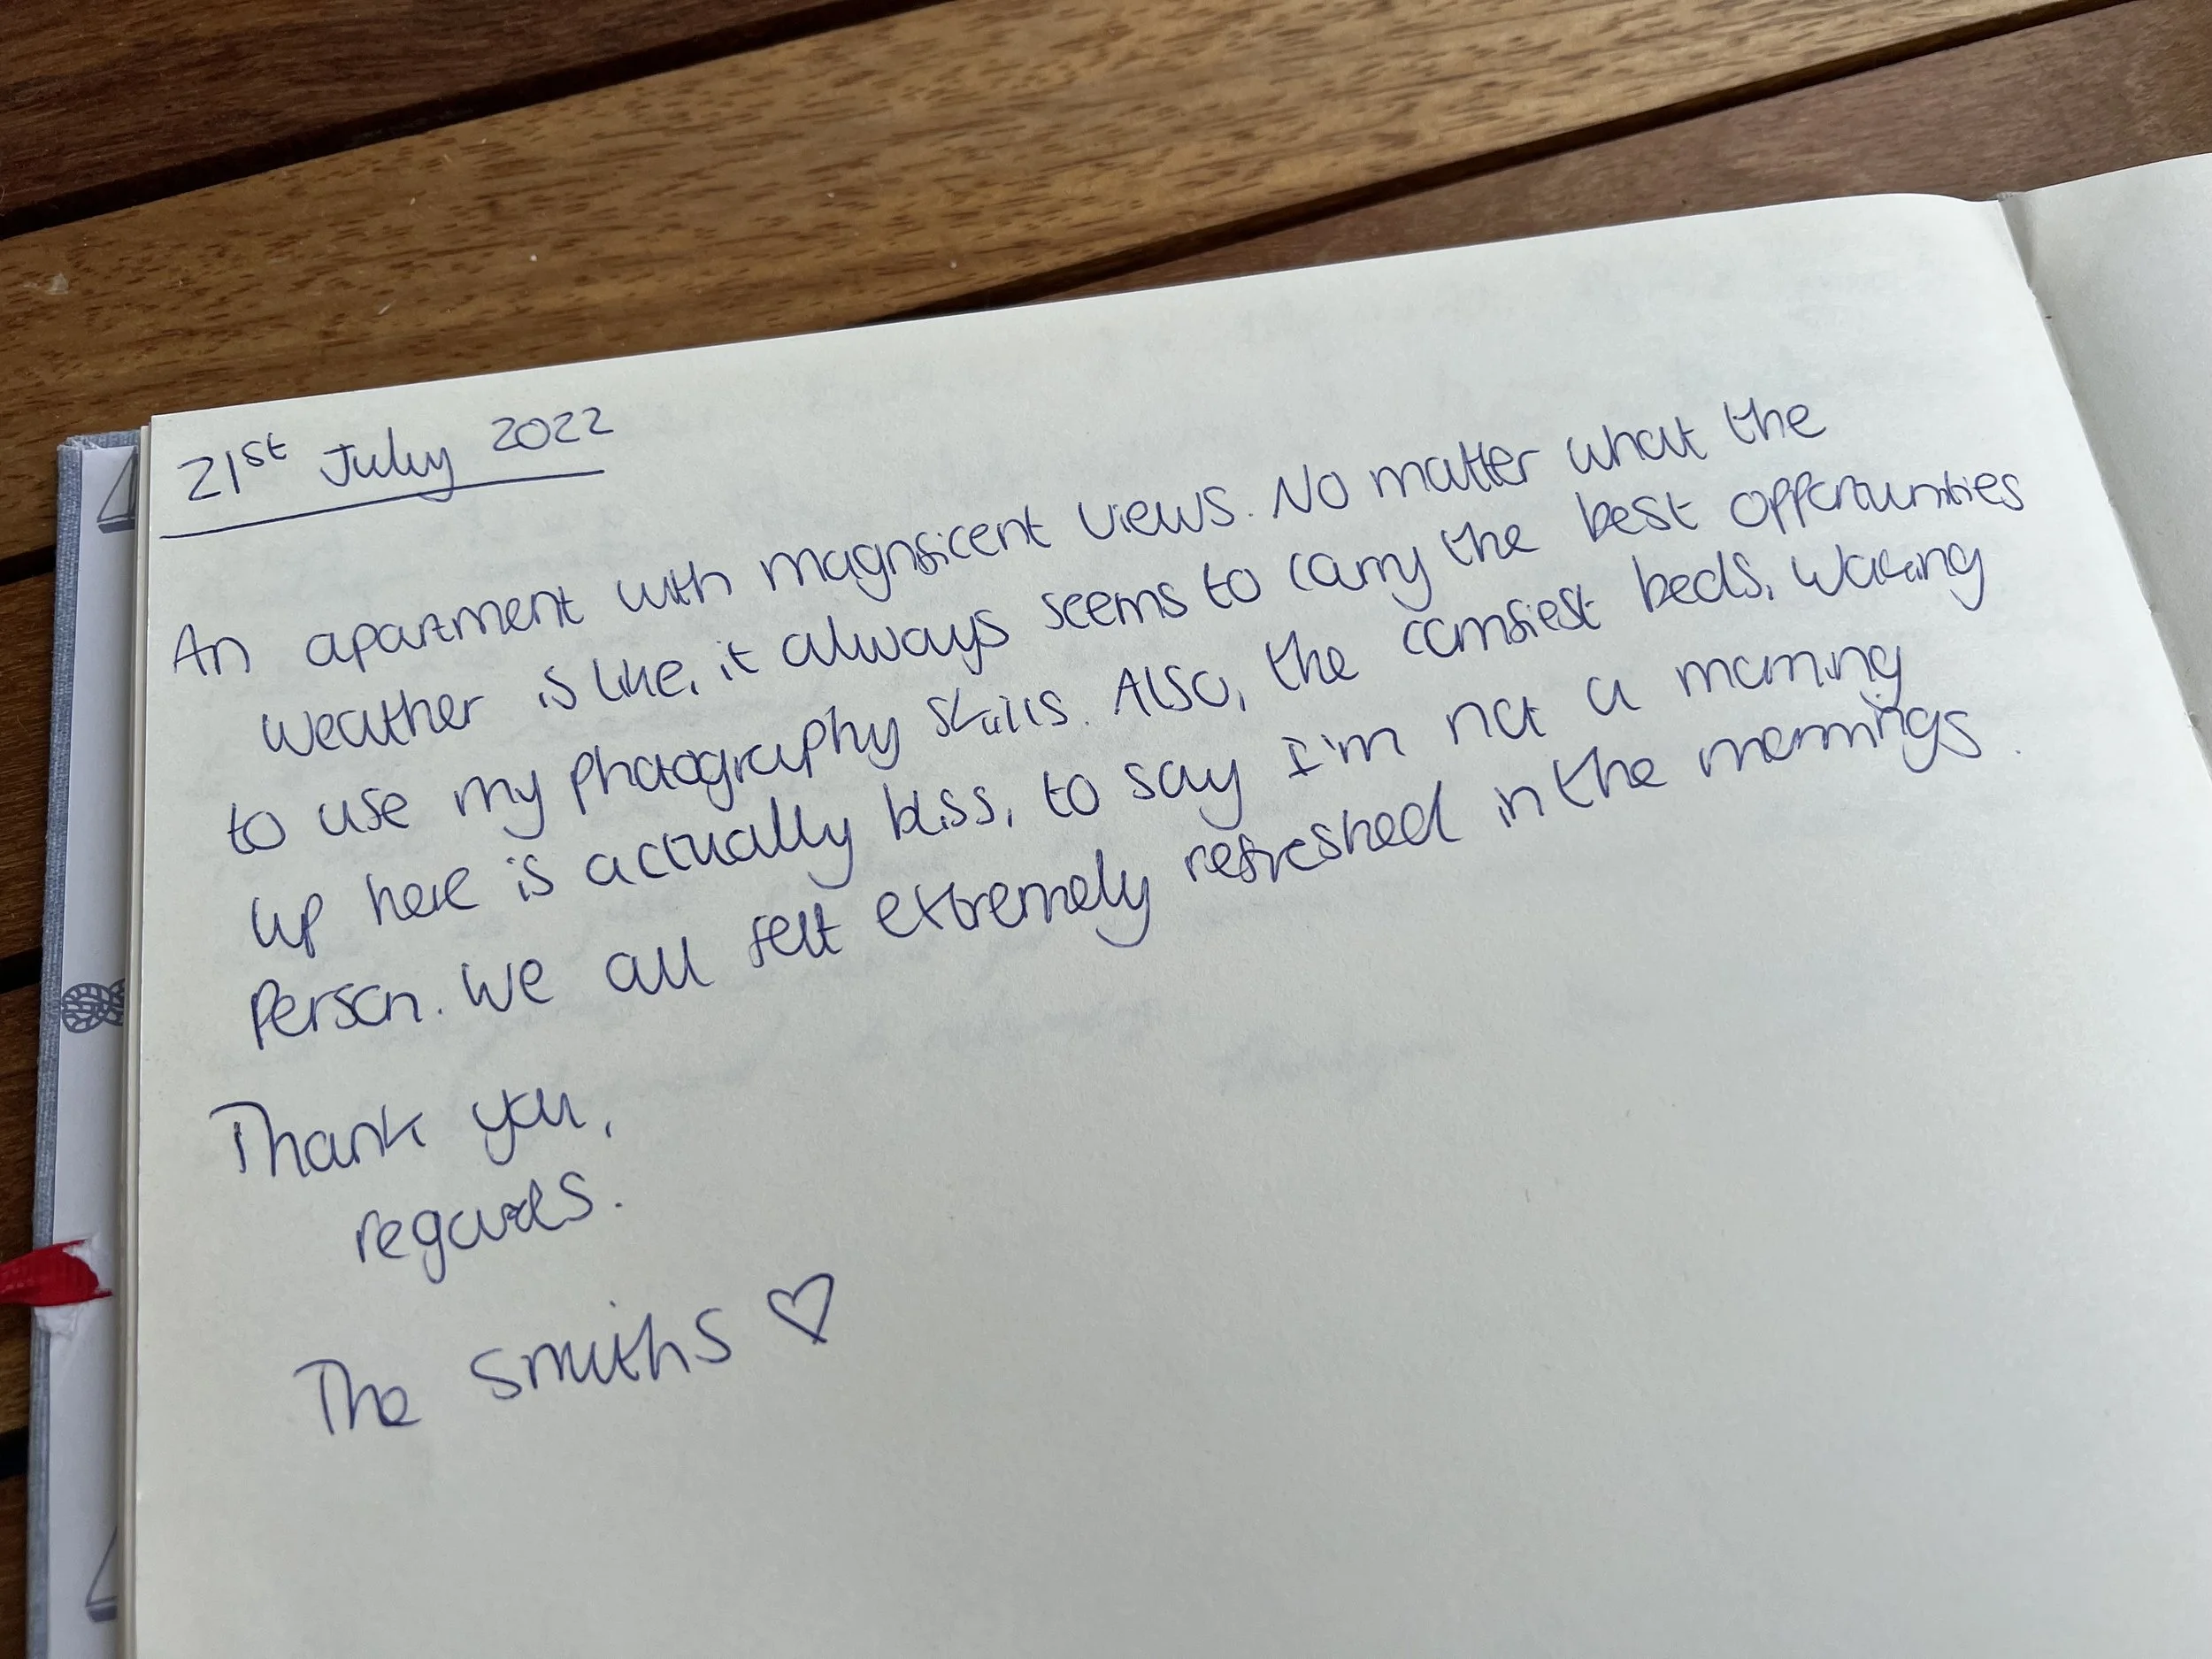 21st July 2022
An apartment with magnificent views. No matter what the
weather is like, it always seems to carry the best opportunities
to use my photography skills. Also, the comfiest beds, waking
up here is actually bliss, to say I'm not a morning
person. We all felt extremely refreshed in the mornings.
Thank you,
regards.
The Smiths ♡